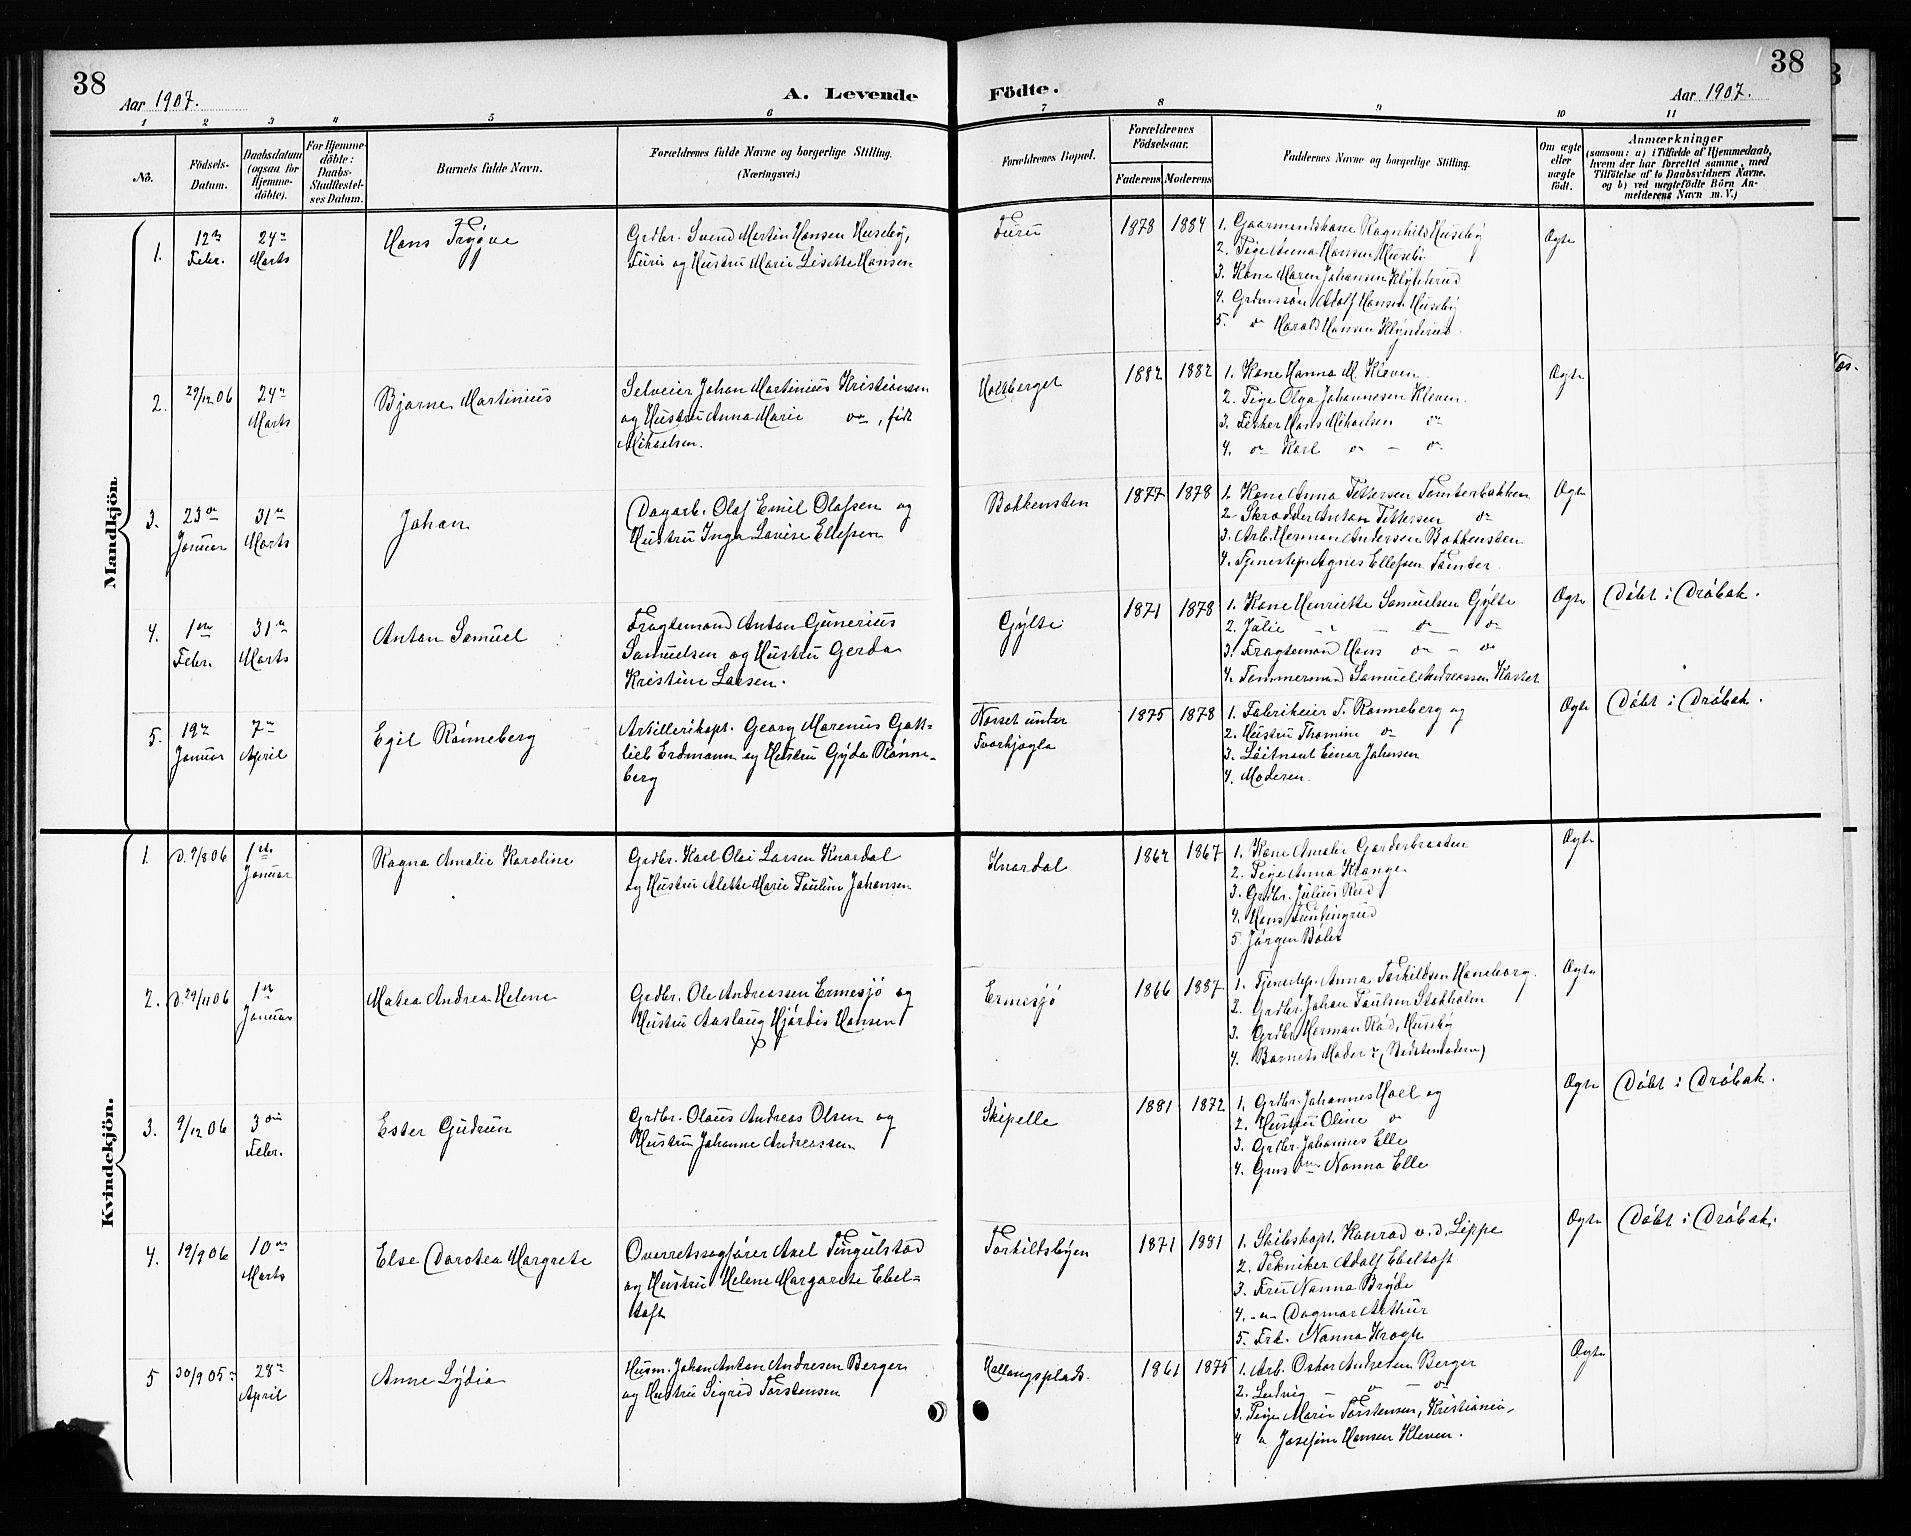 38
Aar 1907.
A. Levende
Födte.
38
Aar 1907.
1 2 3 4 5 6 7 8 9 10 11
No.
Födsels-Datum.
Daabsdatum (ogsaa för Hjemmedöbte).
For Hjemmedöbte: Daabs-Stadfæstelses Datum.
Barnets fulde Navn.
Forældrenes fulde Navne og borgerlige Stilling.
(Næringsvei.)
Forældrenes Bopæl.
Forældrenes Födselsaar.
Faderens
Moderens
Faddernes Navne og borgerlige Stilling.
Om ægte eller uægte födt.
Anmærkninger
(saasom: a) i Tilfælde af Hjemmedaab, hvem der har forrettet samme, med Tilföielse af to Daabsvidners Navne, og b) ved uægtefödte Börn Anmelderens Navn m. V.)
Mandkjön.
1. 12te Febr. 24de Marts Hans Trygve
Grdbr. Svend Martin Hansen Huseby,
Furu og Hustru Marie Lisette Hansen
Furu 1878 1884
1. Gaardmandskone Ragnhild Huseby
2. Pige Anna Hansen Huseby
3. Kone Maren Johansen Klynderud
4. Grdmssön Adolf Hansen Huseby
5. do Harald Hansen Klynderud.
Ægte
2. 29/12 06 24de Marts Bjarne Martinius
Selveier Johan Martinius Kristiansen
og Hustru Anna Marie do, født
Mikaelsen.
Holtberget 1882 1882
1. Kone Hanna M. Kleven
2. Pige Olga Johannesen Kleven.
3. Fisker Hans Mikaelsen do
4. do Karl do - do
Ægte
3. 23de Januar 31te Marts Johan
Dagarb. Olaf Emil Olafsen og
Hustru Inga Lovise Ellefsen
Bakkensten 1877 1878
1. Kone Anna Pettersen Tomterbakken
2. Skrædder Anton Pettersen do
3. Arb. Herman Andersen Bakkensten
4. Tjenestep. Agnes Ellefsen Tomter.
Ægte
4. 1ste Febr. 31te Marts Anton Samuel
Fragtemand Anton Gunerius
Samuelsen og Hustru Gerda
Kristine Larsen.
Gylte 1871 1878
1. Kone Henriette Samuelsen Gylte
2. Julie do do
3. Fragtemand Hans do - do
4. Tømmermand Samuel Andreassen Kastet
Ægte Döbt i Dröbak.
5. 19de Januar 7de April Egil Rønneberg
Artillerikapt. Georg Marenus Gott-
lieb Erdmann og Hustru Gyda Rønne-
berg
Nasset under
Tvørkjøgla
1875 1878
1. Fabrikeier T. Rønneberg og
2. Hustru Thomine do
3. Löitnant Einar Johnsen
4. Moderen.
Ægte Döbt i Dröbak.
Kvindekjön.
1. D. 9/8 06 1ste Januar Ragna Amalie Karoline
Grdbr. Karl Olai Larsen Knardal
og Hustru Alette Marie Pauline Johansen
Knardal 1862 1867
1. Kone Amalie Garderbraaten
2. Pige Anna Krange
3. Grdbr. Julius Rud
4. Hans Tuntingrud
5. Jørgen Bølet
Ægte
2. D. 29/11 06 1ste Januar Matea Andrea Helene
Grdbr. Ole Andreassen Ermesjø og
Hustru Aaslaug Hjördis Hansen
Ermesjø 1866 1887
1. Tjenestep. Anna Torkildsen Haneborg.
2. Grdbr. Johan Paulsen Stokholm
3. Grdbr. Herman Rød, Huseby
4. Barnets Moder (Bedstemoderen)
Ægte
3. 9/12 06 3die Febr. Ester Gudrun
Grdbr. Olaus Andreas Olsen og
Hustru Johanne Andreassen
Skipelle 1881 1872
1. Grdbr. Johannes Hoel og
2. Hustru Oline do
3. Grdbr. Johannes Elle
4. Nanna Elle
Ægte Döbt i Dröbak.
4. 12/9 06 10de Marts Else Dorotea Margrete
Overretssagfører Axel Tingulstad
og Hustru Helene Margarete Ebel-
toft
Torkildsbyen 1871 1881
1. Skibskapt. Konrad v. d. Lippe
2. Tekniker Adolf Ebeltoft.
3. Fru Nanna Bryde
4. do Dagmar Arthur
5. Frk. Nanna Krogh
Ægte Döbt i Dröbak.
5 30/9 05 28de April Anne Lydia
Husm. Johan Anton Andresen Berger
og Hustru Sigrid Torstensen
Hallangsplads. 1861 1875
1. Arb. Oskar Andresen Berger
2. Ludvig - do - do
3. Pige Marie Torstensen, Kristiania,
4 do Josefine Hansen Kleven.
Ægte